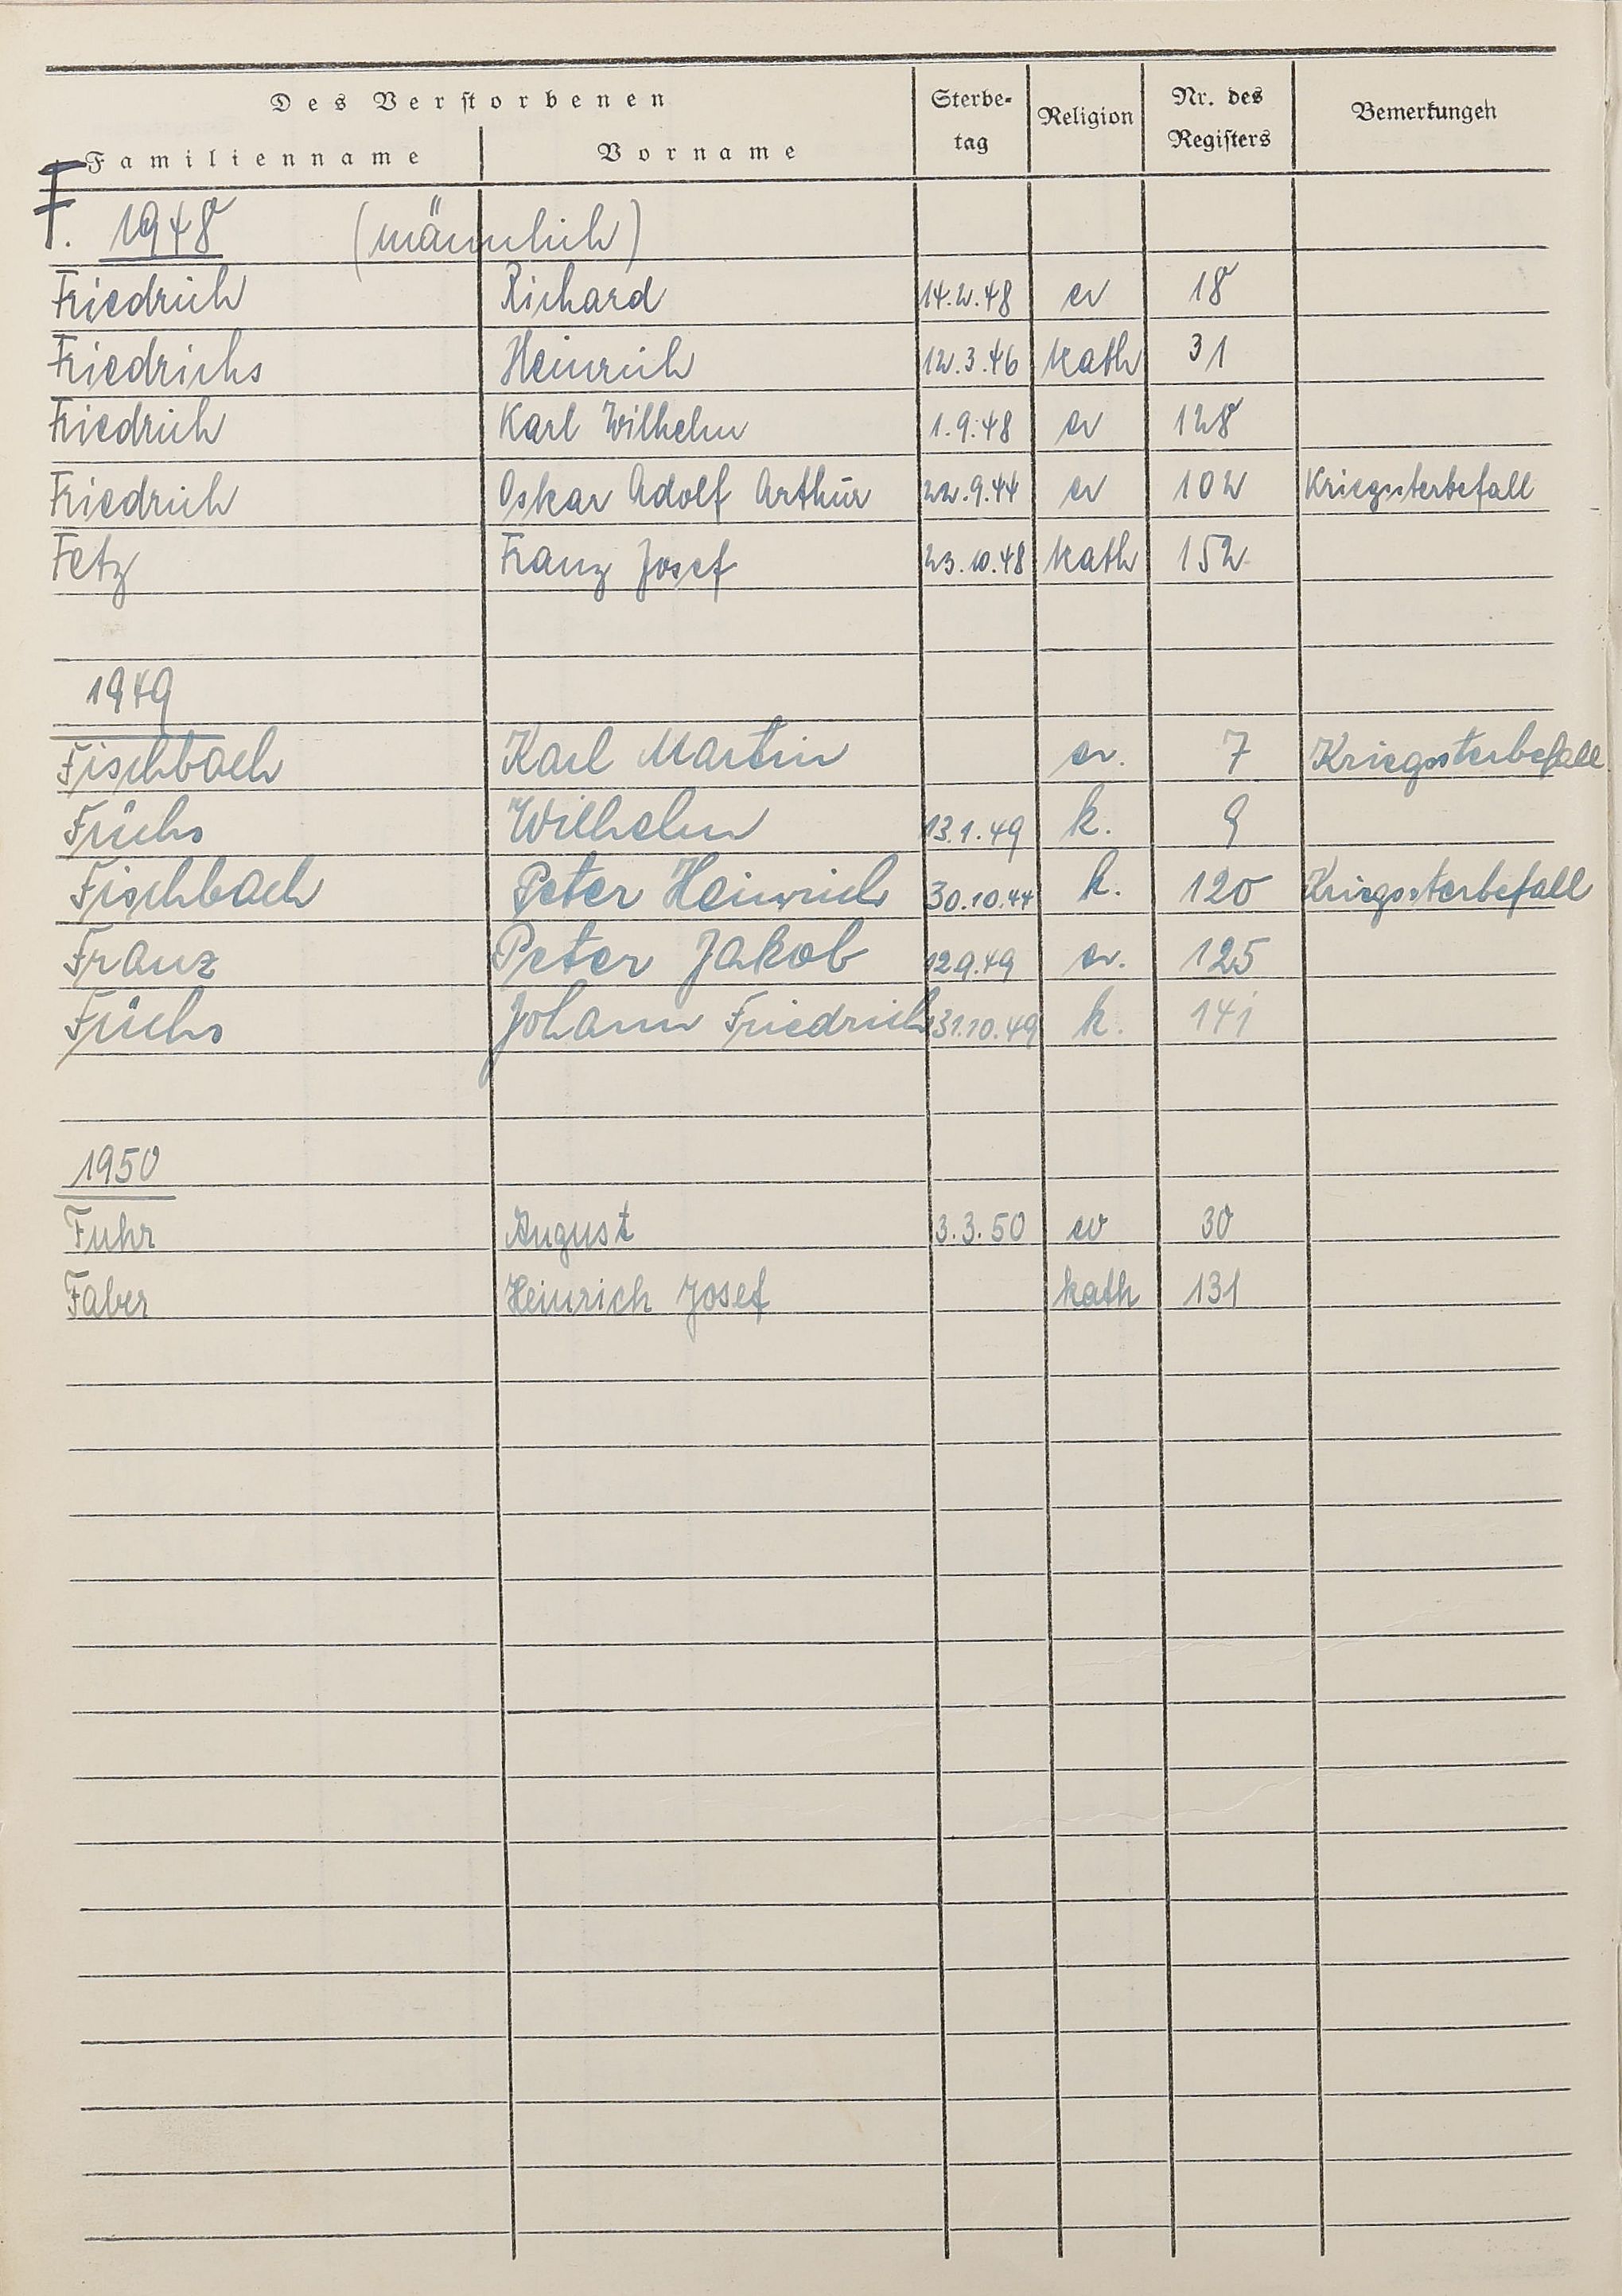 Des Verstorbenen
Familienname Vorname Sterbe-
tag Religion Nr. des
Registers Bemerkungen
F. 1948 (männlich)
Friedrich Richard 14.2.48 ev 18
Friedrichs Heinrich 12.3.46 kath 31
Friedrich Karl Wilhelm 1.9.48 ev 128
Friedrich Oskar Adolf Arthur 22.9.44 ev 102 Kriegssterbefall
Fetz Franz Josef 23.10.48 kath 152
1949
Fischbach Karl Martin ev. 7 Kriegssterbefall
Fuchs Wilhelm 13.1.49 k. 9
Fischbach Peter Heinrich 30.10.44 k. 120 Kriegssterbefall
Franz Peter Jakob 12.9.49 ev. 125
Fuchs Johann Friedrich 31.10.49 k. 141
1950
Fuhr August 3.3.50 ev 30
Faber Heinrich Josef kath 131